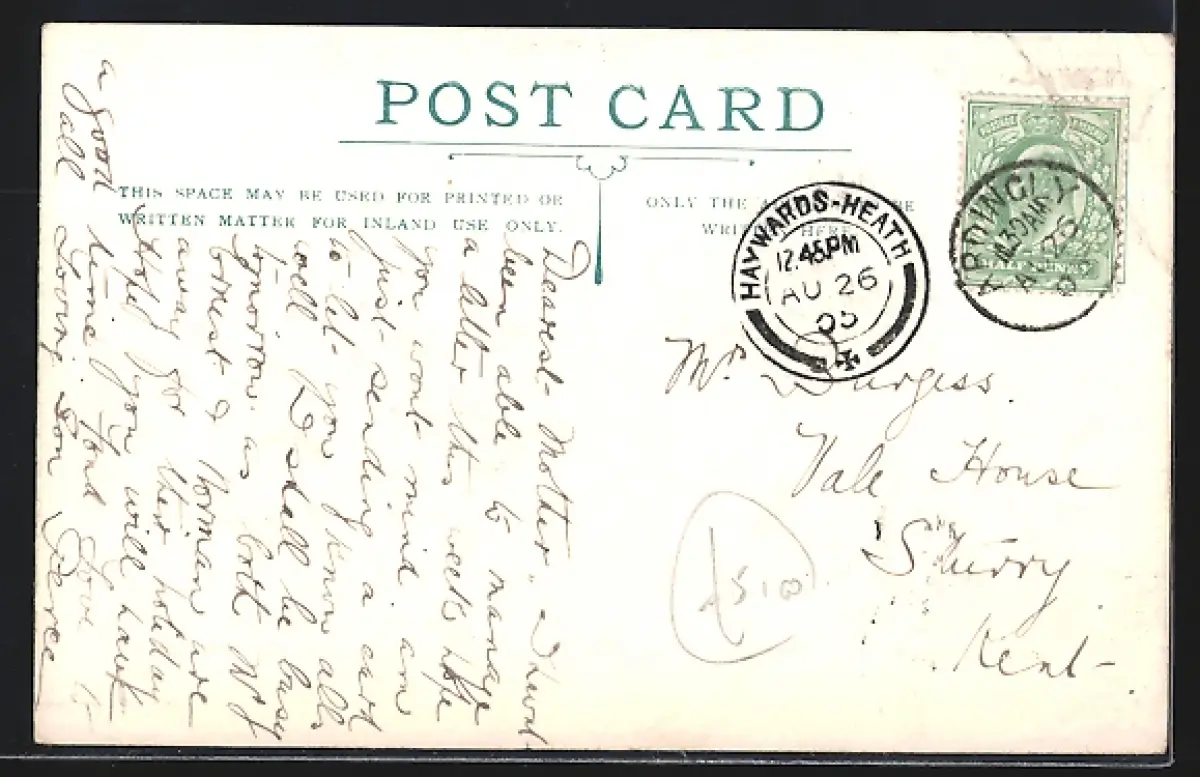 POST CARD
THIS SPACE MAY BE USED FOR PRINTED OR
WRITTEN MATTER FOR INLAND USE ONLY.
ONLY THE
WRI HERE
HAYWARDS-HEATH
12.45PM
AU 26
05
ARDINGLY
HALF PENNY
Burgess
Vale House
Sturry
Kent
Dearest Mother
been able to manage
a letter this week hope
you wont mind. am
just sending a card
to let you know all's
well I shall be busy
tomorrow. as both
& Norman are
away for their holiday
Hope you will have
a good time, fond love
all
Loving Son